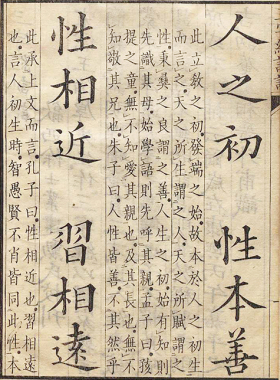 人之初　性本善
此立教之初發端之始故本於人之初生
而言之天之所生謂之人天之所賦謂之
性秉彝之良謂之善人生之初始有知則
先識其母始學語則先呼其親孟子曰孩
提之童無不知愛其親也及其長也無不
知敬其兄也朱子曰人性皆善不其然乎
性相近　習相遠
此承上文而言孔子曰性相近也習相遠
也言人初生時智愚賢不肖皆同此性本